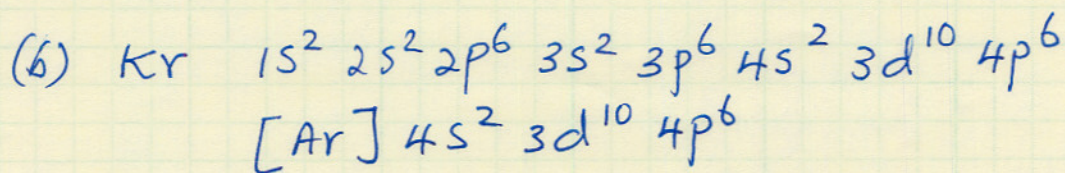 (b) Kr 1s² 2s² 2p⁶ 3s² 3p⁶ 4s² 3d¹⁰ 4p⁶
[Ar] 4s² 3d¹⁰ 4p⁶